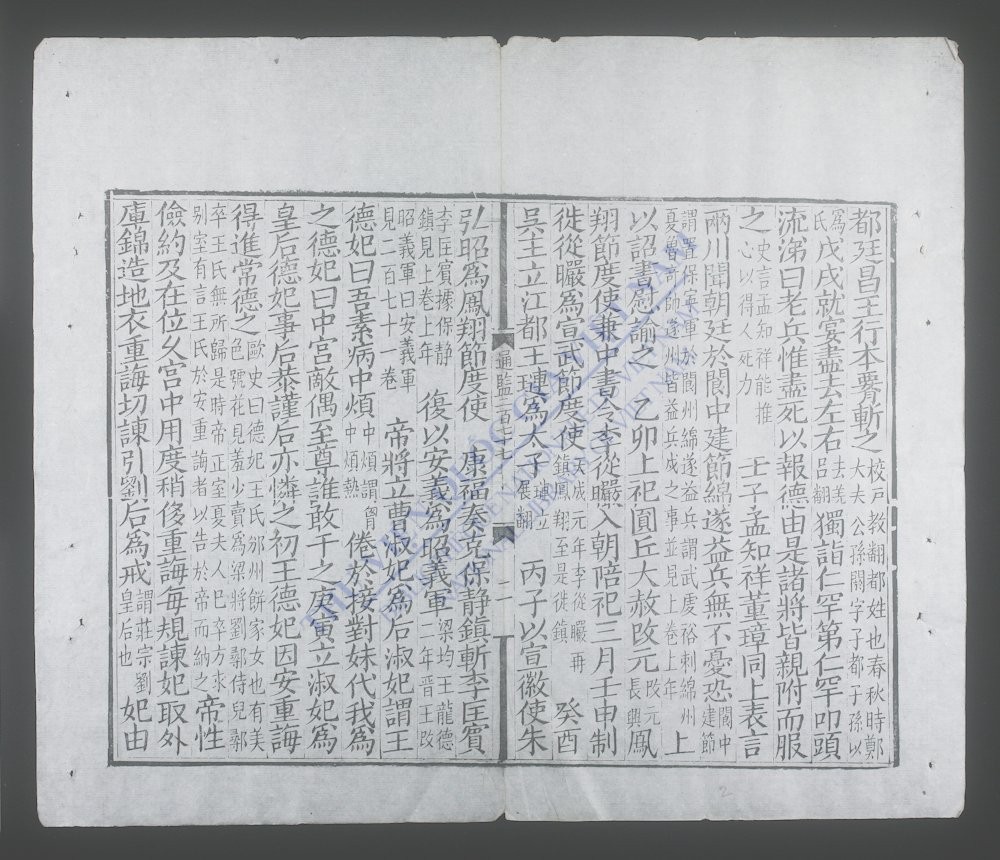 都延昌王行本要斬之校戸教翻都姓也春秋時鄭大夫公孫閼字子都子孫以
爲氏戊戌就宴盡去左右去羌呂翻獨詣仁罕第仁罕叩頭
流涕曰老兵惟盡死以報德由是諸將皆親附而服
之史言孟知祥能推心以得人死力 壬子孟知祥董璋同上表言
兩川聞朝廷於閬中建節綿遂益兵無不憂恐閬中建節
謂置保寧軍於閬州綿遂益兵謂武虔裕刺綿州夏魯奇帥遂州皆益兵成之事並見上卷上年上
以詔書慰諭之 乙卯上祀圓丘大赦改元改元長興鳳
翔節度使兼中書令李從曮入朝陪祀三月壬申制
徙從曮爲宣武節度使天成元年李從曮再鎮鳳翔至是徙鎮 癸酉
吳主立江都王璉爲太子璉立展翻 丙子以宣徽使朱
通監二百七十七
二
弘昭爲鳳翔節度使 康福奏克保静鎮斬李匡賓
李匡賓據保静鎮見上卷上年 復以安義爲昭義軍梁均王龍德二年晉王改
昭義軍曰安義軍見二百七十一卷 帝將立曹淑妃爲后淑妃謂王
德妃曰吾素病中煩中煩謂胷中煩熱倦於接對妹代我爲
之德妃曰中宮敵偶至尊誰敢干之庚寅立淑妃爲
皇后德妃事后恭謹后亦憐之初王德妃因安重誨
得進常德之歐史曰德妃王氏邠州餅家女也有美色號花見羞少賣爲梁將劉鄩侍兒鄩
卒王氏無所歸是時帝正室夏夫人巳卒方求别室有言王氏於安重誨者以告於帝而納之帝性
儉約及在位久宮中用度稍侈重誨每規諫妃取外
庫錦造地衣重誨切諫引劉后爲戒謂莊宗劉皇后也妃由
THƯ VIỆN QUỐC GIA VIỆT NAM